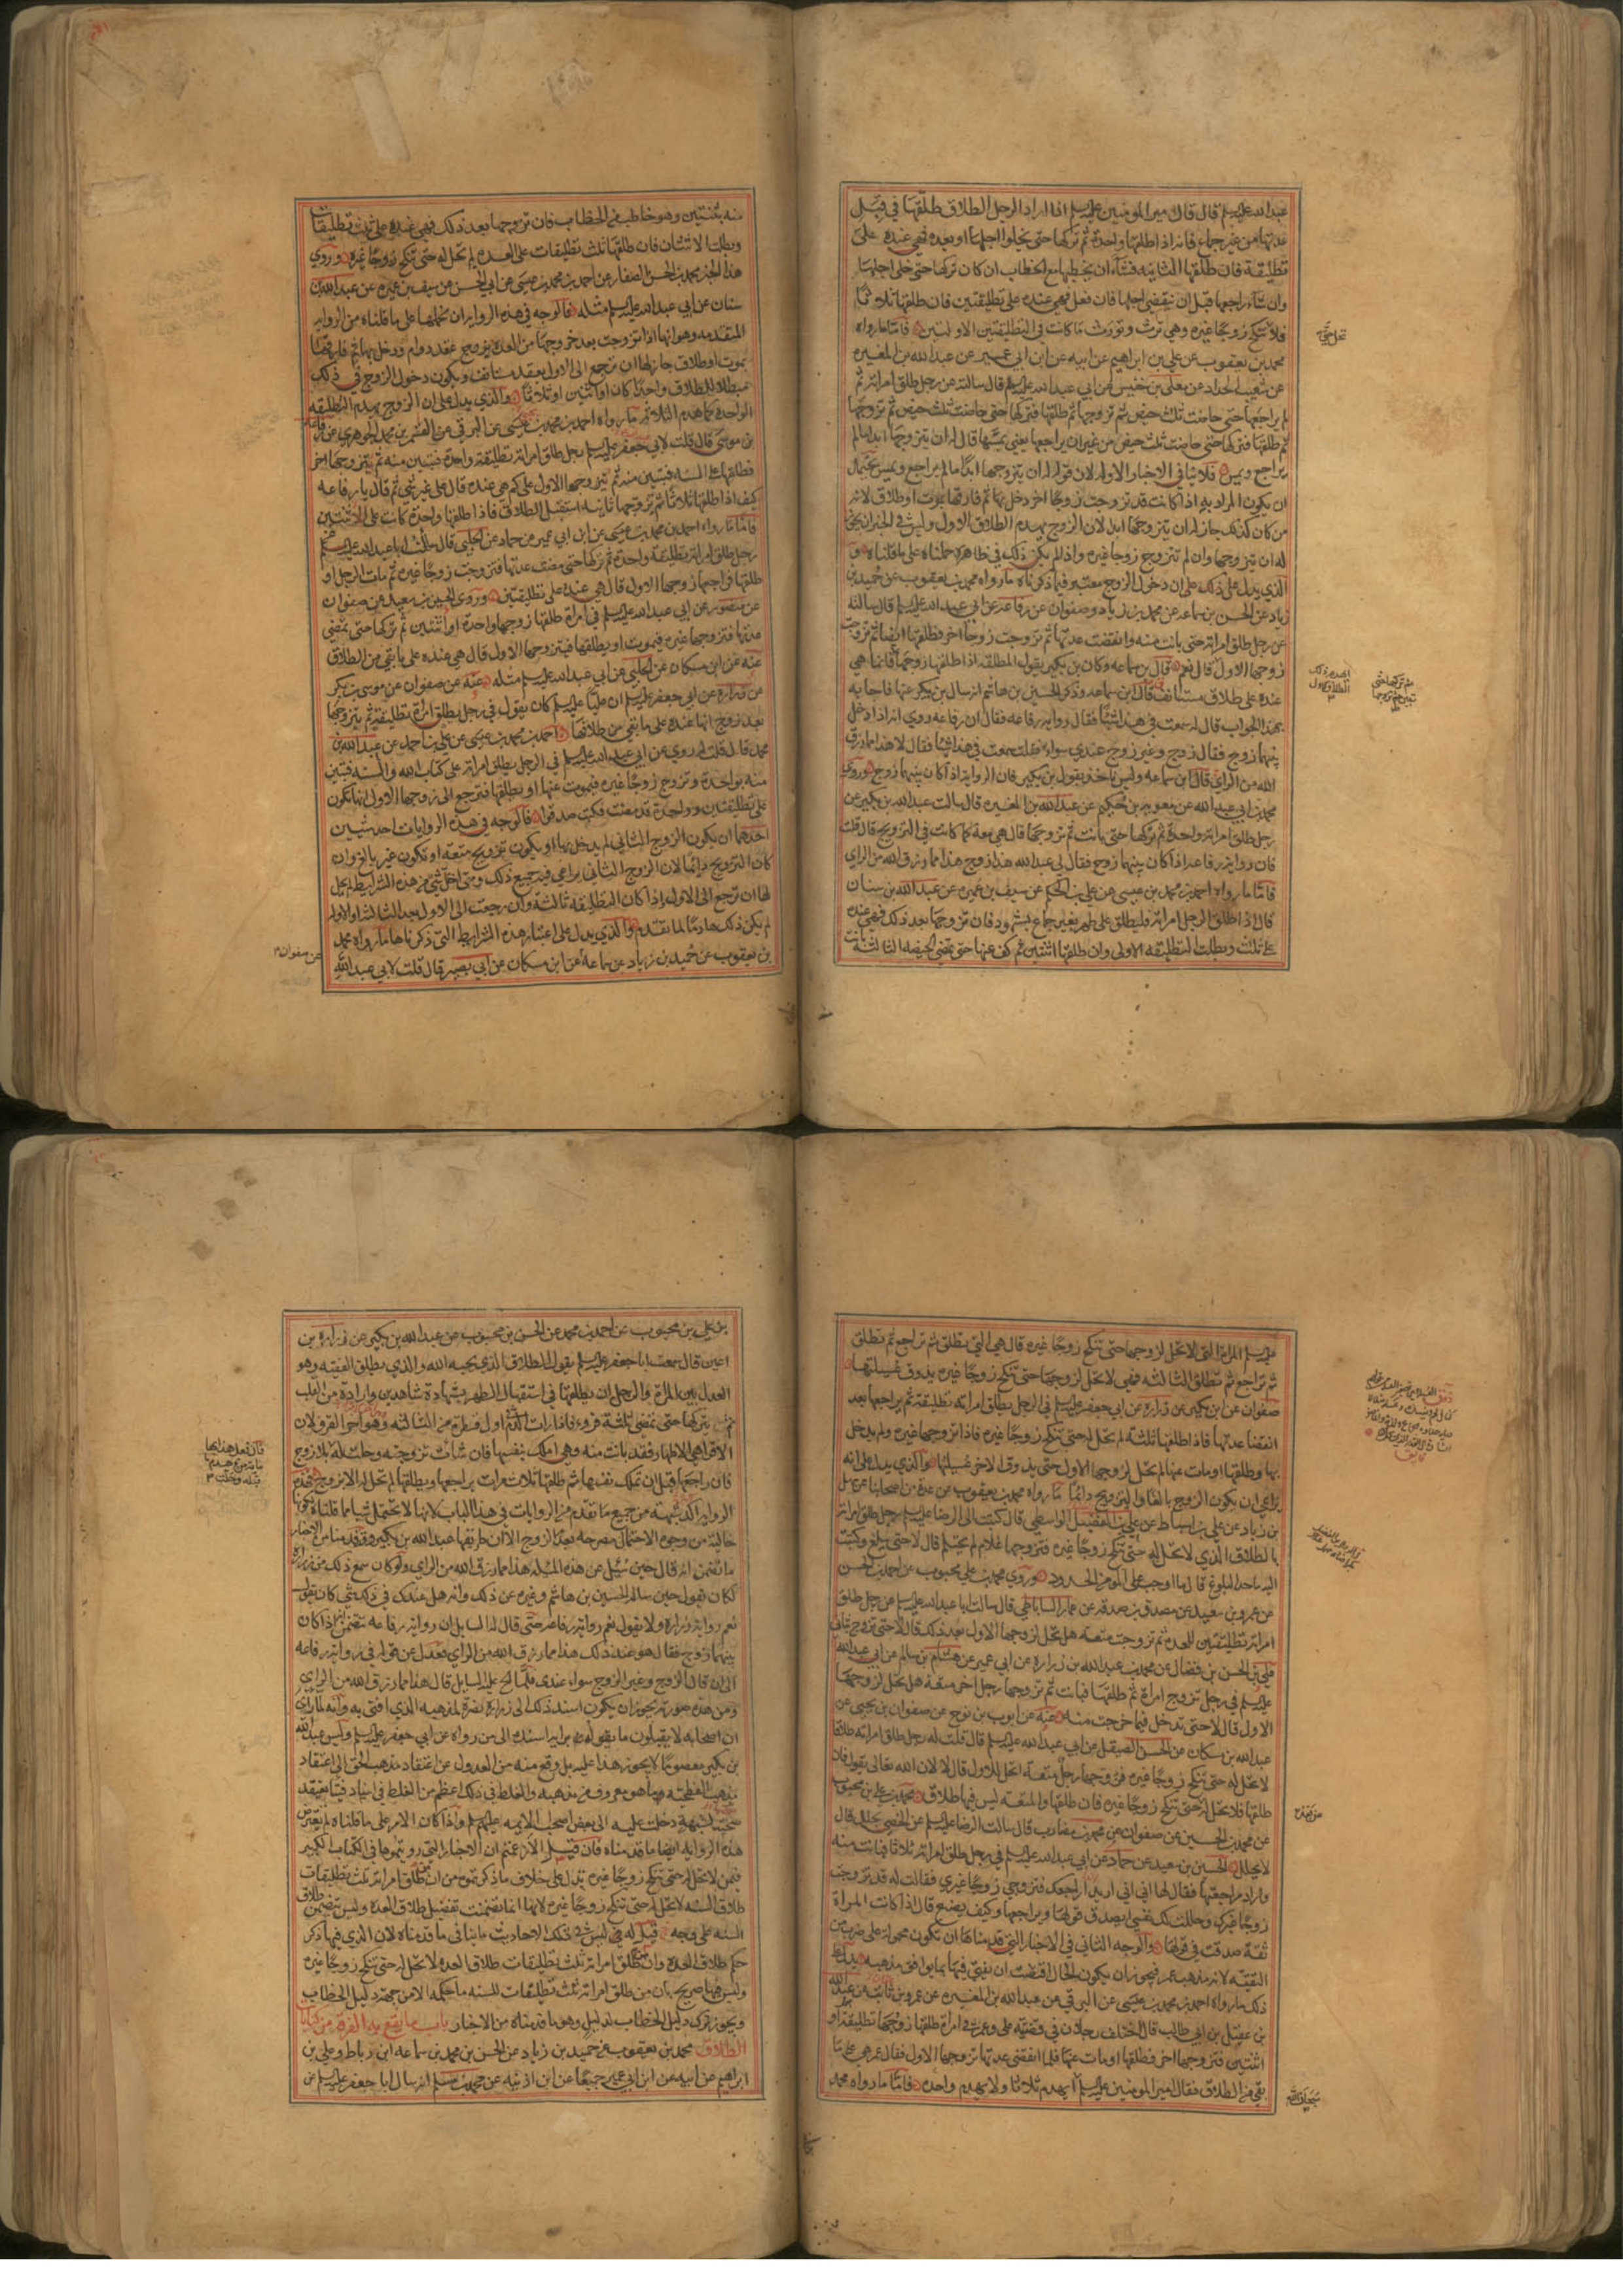 عبد الله عليه السلام قال قال امير المومنين عليه السلم اذا اراد الرجل الطلاق طلقها في قبل
عدتها من غير جماع فانه اذا طلقها واحدة ثم تركها حتى يخلوا اجلها او بعده فهي عنده على
تطليقة فان طلقها الثانيه فشآء ان يخطبها مع الخطاب ان كان تركها حتى خلى اجلها
وان شآء راجعها قبل ان ينقضي اجلها فان فعل فهي عنده على تطليقتين فان طلقها ثلاثا
فلا تنكح زوجا غيره وهي ترث وتورث ما كانت في التطليقتين الاولتين فاما ما رواه
تحل حتى
محمد بن يعقوب عن علي بن ابراهيم عن ابيه عن ابن ابي عمير عن عبد الله بن المغيره
عن شعيب الحداد عن معلى بن خنيس عن ابي عبد الله عليه السلم قال سالته عن رجل طلق امراته ثم
لم يراجعها حتى حاضت ثلث حيض ثم تزوجها ثم طلقها فتركها حتى حاضت ثلث حيض ثم تزوجها
ثم طلقها فتركها حتى حاضت ثلث حيض من غير ان يراجعها يعني يمسها قال له ان يتزوجها ابدا ما لم
يراجع ويمس فلا ينافي الاخبار الاوله لان قوله له ان يتزوجها ابدا ما لم يراجع ويمس يحتمل
ان يكون المراد به اذا كانت قد تزوجت زوجا اخر دخل بها ثم فارقها بموت او طلاق لانه
من كان كذلك جاز له ان يتزوجها ابدا لان الزوج يهدم الطلاق الاول وليس في الخبر انه يجوز
له ان يتزوجها وان لم تتزوج زوجا غيره واذا لم يكن ذلك في ظاهره حملناه على ما قلناه و
الذي يدل على ذلك على ان دخول الزوج معتبر فيما ذكرناه ما رواه محمد بن يعقوب عن حميد بن
زياد عن الحسن بن سماعه عن محمد بن زياد وصفوان عن رفاعه عن ابي عبد الله عليه السلم قال سالته
عن رجل طلق امراته حتى بانت منه وانقضت عدتها ثم تزوجت زوجا اخر فطلقها ايضا ثم تزوجت
زوجها الاول قال نعم قال بن سماعه وكان بن بكير يقول المطلقه اذا طلقها زوجها فانما هي
ايهدم ذلك الطلاق الاول
عنده على طلاق مستانف قال ابن سماعه وذكر الحسين بن هاشم انه سال بن بكير عنها فاجابه
بهذا الجواب قال له سمعت في هذا شيئا فقال رواية رفاعه فقال ان رفاعه روى انه اذا دخل
بينهما زوج فقال زوج وغير زوج عندي سواء فقلت سمعت في هذا شيئا فقال لا هذا مما رزق
الله من الراي قال ابن سماعه وليس ناخذ بقول بن بكير فان الرواية اذا كان بينهما زوج وروى
محمد بن ابي عبد الله عن معويه بن حكيم عن عبد الله بن المغيره قال سالت عبد الله بن بكير عن
رجل طلق امراته واحدة ثم تركها حتى بانت ثم تزوجها قال هي معه كما كانت في التزويج قال قلت
فان رواية رفاعه اذا كان بينهما زوج فقال لي عبد الله هذا زوج هذا مما رزق الله من الراي
فاما ما رواه احمد بن محمد بن عيسى عن علي بن الحكم عن سيف بن عميره عن عبد الله بن سنان
قال اذا طلق الرجل امراته فليطلق على طهر بغير جماع بشهود فان تزوجها بعد ذلك فهي عنده
على ثلث وبطلت التطليقه الاولى وان طلقها اثنتين ثم كف عنها حتى تمضي الحيضه الثالثة بانت
منه بثنتين وهو خاطب من الخطاب فان تزوجها بعد ذلك فهي عنده على ثلث تطليقات
وبطلت الاثنتان فان طلقها ثلث تطليقات على العده لم تحل له حتى تنكح زوجا غيره وروى
هذا الخبر محمد بن الحسن الصفار عن احمد بن محمد بن عيسى عن ابي الحسن عن سيف بن عميره عن عبد الله بن
سنان عن ابي عبد الله عليه السلم مثله فالوجه في هذه الرواية ان نحملها على ما قلناه من الرواية
المتقدمه وهو انها اذا تزوجت بعد خروجها من العدة بزوج عقد دوام ودخل بها ثم فارقها
بموت او طلاق جاز لها ان ترجع الى الاول بعقد مستانف ويكون دخول الزوج في ذلك
مبطلا للطلاق واحدا كان او اثنين او ثلاثا والذي يدل على ان الزوج يهدم التطليقه
الواحدة كما هدم الثلاثه ما رواه احمد بن محمد بن عيسى عن البرقي عن القسم بن محمد الجوهري عن رفاعه
بن موسى قال قلت لابي جعفر عليه السلم رجل طلق امراته تطليقة واحدة فتبين منه ثم يتزوجها اخر
فطلقها على السنه فتبين منه ثم يتزوجها الاول على كم هي عنده قال على غير شي ثم قال يا رفاعه
كيف اذا طلقها ثلاثا ثم تزوجها ثانية استقبل الطلاق فاذا طلقها واحدة كانت على الاثنتين
فاما ما رواه احمد بن محمد بن عيسى عن ابن ابي عمير عن حماد عن الحلبي قال سالت ابا عبد الله عليه السلم عن
رجل طلق امراته تطليقة واحدة ثم تركها حتى مضت عدتها فتزوجت زوجا غيره ثم مات الرجل او
طلقها فراجعها زوجها الاول قال هي عنده على تطليقتين وروى الحسين بن سعيد عن صفوان
عن منصور عن ابي عبد الله عليه السلم في امراة طلقها زوجها واحدة او اثنتين ثم تركها حتى تمضي
عدتها فتزوجها غيره فيموت او يطلقها فيتزوجها الاول قال هي عنده على ما بقي من الطلاق
عنه عن ابن مسكان عن الحلبي عن ابي عبد الله عليه السلم مثله عنه عن صفوان عن موسى بن بكر
عن زراره عن ابي جعفر عليه السلم ان عليا عليه السلم كان يقول في رجل يطلق امراة تطليقة ثم يتزوجها
بعد زوج انها عنده على ما بقي من طلاقها احمد بن محمد بن عيسى عن علي بن احمد عن عبد الله بن
محمد قال قلت له روي عن ابي عبد الله عليه السلم في الرجل يطلق امراته على كتاب الله والسنه فتبين
منه بواحدة وتزوج زوجا غيره فيموت عنها او يطلقها فترجع الى زوجها الاول انها تكون
على تطليقتين وواحدة قد مضت فكتب صدقوا فالوجه في هذه الروايات احد شيئين
احدهما ان يكون الزوج الثاني لم يدخل بها او يكون تزويج متعه او يكون غير بالغ وان
كان التزويج دائما لان الزوج الثاني يراعى فيه جميع ذلك ومتى اختل شي من هذه الشرايط لم يحل
لها ان ترجع الى الاول اذا كان التطليقه ثالثة وان رجعت الى الاول بعد الثالثه او الاوله
لم يكن ذلك هادما لما تقدم والذي يدل على اعتبار هذه الشرايط التي ذكرناها ما رواه محمد
بن يعقوب عن حميد بن زياد عن سماعه عن ابن مسكان عن ابي بصير قال قلت لابي عبد الله
عن صفوان
عليه السلم المراة التي لا تحل لزوجها حتى تنكح زوجا غيره قال هي التي تطلق ثم تراجع ثم تطلق
ثم تراجع ثم تطلق الثالثه فهي لا تحل لزوجها حتى تنكح زوجا غيره يذوق عسيلتها
صفوان عن ابن بكير عن زراره عن ابي جعفر عليه السلم في الرجل يطلق امراته تطليقة ثم يراجعها بعد
انقضا عدتها فاذا طلقها الثلثة لم تحل له حتى تنكح زوجا غيره فاذا تزوجها غيره ولم يدخل
بها وطلقها او مات عنها لم تحل لزوجها الاول حتى يذوق الاخر عسيلتها والذي يدل على انه
يراعى ان يكون الزوج بالغا والتزويج دائما ما رواه محمد بن يعقوب عن عدة من اصحابنا عن سهل
بن زياد عن علي بن اسباط عن علي بن الفضل الواسطي قال كتبت الى الرضا عليه السلم رجل طلق امراته
بالطلاق الذي لا تحل له حتى تنكح زوجا غيره فتزوجها غلام لم يحتلم قال لا حتى يبلغ وكتبت
اليه ما حد البلوغ قال ما اوجب على المومن الحدود وروى محمد بن علي بن محبوب عن احمد بن الحسن
عن عمرو بن سعيد عن مصدق بن صدقه عن عمار الساباطي قال سالت ابا عبد الله عليه السلم عن رجل طلق
امراته تطليقتين للعده ثم تزوجت متعة هل تحل لزوجها الاول بعد ذلك قال لا حتى تزوج بتاتا
علي بن الحسن بن فضال عن محمد بن عبد الله بن زرارة عن ابن ابي عمير عن هشام بن سالم عن ابي عبد الله
عليه السلم في رجل تزوج امراة ثم طلقها فبانت ثم تزوجها رجل اخر متعة هل تحل لزوجها
الاول قال لا حتى تدخل فيما خرجت منه عنه عن ايوب بن نوح عن صفوان بن يحيى عن
عبد الله بن مسكان عن الحسن الصيقل عن ابي عبد الله عليه السلم قال قلت له رجل طلق امراته طلاقا
لا تحل له حتى تنكح زوجا غيره فتزوجها رجل متعة اتحل للاول قال لا لان الله تعالى يقول فان
طلقها فلا تحل له حتى تنكح زوجا غيره فان طلقها والمتعه ليس فيها طلاق محمد بن علي بن محبوب
عن محمد بن الحسين عن صفوان عن محمد بن مضارب قال سالت الرضا عليه السلم عن الخصي يحلل قال
لا يحلل الحسين بن سعيد عن حماد عن ابي عبد الله عليه السلم في رجل طلق امراته ثلاثا فبانت منه
فاراد مراجعتها فقال لها اني اريد اراجعك فتزوجي زوجا غيري فقالت له قد تزوجت
زوجا غيرك وحللت لك نفسي ايصدق قولها ويراجعها وكيف يصنع قال اذا كانت المراة
ثقة صدقت في قولها والوجه الثاني في الاخبار التي قدمناها ان تكون محمولة على ضرب من
التقيه لانه مذهب عمر فيجوز ان يكون الحال اقتضت ان يفتي فيها بما يوافق مذهبه يدل على
ذلك ما رواه احمد بن محمد بن عيسى عن البرقي عن عبد الله بن المغيره عن عمرو بن ثابت عن عبد الله
بن عقيل بن ابي طالب قال اختلف رجلان في قضية علي وعمر في امراة طلقها زوجها تطليقة او
اثنتين فتزوجها اخر فطلقها او مات عنها فلما انقضى عدتها تزوجها الاول فقال عمر هي على ما
بقي من الطلاق فقال امير المومنين عليه السلم ايهدم ثلاثا ولا يهدم واحده فاما ما رواه محمد
سبحان الله
بن علي بن محبوب عن احمد بن محمد عن الحسن بن محبوب عن عبد الله بن بكير عن زراره بن
اعين قال سمعت ابا جعفر عليه السلم يقول الطلاق الذي يحبه الله والذي يطلق الفقيه وهو
العدل بين المراة والرجل ان يطلقها في استقبال الطهر بشهادة شاهدين وارادة من القلب
ثم يتركها حتى تمضي ثلثة قروء فاذا رات الدم اول قطرة من الثالثه وهو اخر القروء لان
الاقرا هي الاطهار فقد بانت منه وهي املك بنفسها فان شائت تزوجته وحلت له بلا زوج
فان راجعها قبل ان تملك نفسها ثم طلقها ثلاث مرات يراجعها ويطلقها لم تحل له الا بزوج فهذه
الرواية اكد شبهة من جميع ما تقدم من الروايات في هذا الباب لانها لا تحتمل شيا مما قلناه لكونها
خالية من وجوه الاحتمال مصرحه بعدم الزوج الا ان طريقها عبد الله بن بكير وقد قدمنا من الاخبار
ما تضمن انه قال حين سئل عن هذه المسئله هذا مما رزق الله من الراي ولو كان سمع ذلك من زراره
لكان يقول حين ساله الحسين بن هاشم وغيره عن ذلك وانه هل عندك في ذلك شي كان يقول
نعم رواية زرارة ولا يقول نعم رواية رفاعه حتى قال له السايل ان رواية رفاعه تتضمن انه اذا كان
بينهما زوج فقال هو عند ذلك هذا مما رزق الله من الراي فعدل عن قوله في رواية رفاعه
الى ان قال الزوج وغير الزوج سواء عندي فلما الح عليه السايل قال هذا مما رزق الله من الراي
ومن هذه صورته يجوز ان يكون اسند ذلك الى زرارة نصرة لمذهبه الذي افتى به وانه لما راى
ان اصحابه لا يقبلون ما يقوله برايه اسنده الى من رواه عن ابي جعفر عليه السلم وليس عبد الله
بن بكير معصوما لا يجوز هذا عليه بل وقع منه من العدول عن اعتقاد مذهب الحق الى اعتقاد
مذهب الفطحيه ما هو معروف من مذهبه والغلط في ذلك اعظم من الغلط في اسناد فتيا يعتقد
صحته لشبهة دخلت عليه الى بعض اصحاب الايمه عليهم السلم واذا كان الامر على ما قلناه لم يعترض
هذه الرواية ايضا ما قدمناه فان قيل الا زعمتم ان الاخبار التي رويتموها في الكتاب الكبير
فيمن لا تحل له حتى تنكح زوجا غيره تدل على خلاف ما ذكرتموه من ان من طلق امراته ثلث تطليقات
طلاق السنه لا تحل له حتى تنكح زوجا غيره لانها انما تضمنت تفصيل طلاق العده وليس تتضمن طلاق
السنه على وجه قيل له في ليس في تلك الاحاديث ما ينافي ما قدمناه لان الذي فيها ذكر
حكم طلاق العده وان من طلق امراته ثلث تطليقات طلاق العده لا تحل له حتى تنكح زوجا غيره
وليس فيها صريح بان من طلق امراته ثلث تطليقات للسنه ما حكمه الا من جهة دليل الخطاب
ويجوز ترك دليل الخطاب لدليل وهو ما قدمناه من الاخبار باب ما يقع به الفرقه من كنايات
الطلاق محمد بن يعقوب عن حميد بن زياد عن الحسن بن محمد بن سماعه ابن رباط وعلي بن
ابراهيم عن ابيه عن ابن ابي عمير جميعا عن ابن اذينه عن محمد بن مسلم انه سال ابا جعفر عليه السلم عن